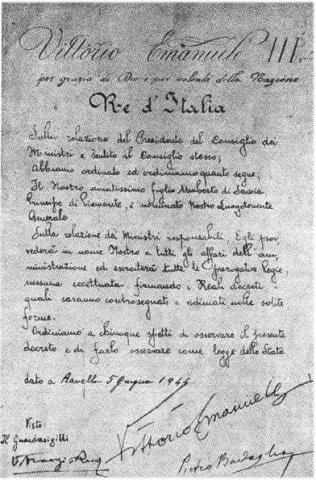 Vittorio Emanuele III
per grazia di Dio e per volontà della Nazione
Re d'Italia
Sulla relazione del Presidente del Consiglio dei
Ministri e sentito il Consiglio stesso;
Abbiamo ordinato ed ordiniamo quanto segue;
Il Nostro amatissimo figlio Umberto di Savoia
Principe di Piemonte, è nominato Nostro Luogotenente
Generale
Sulla relazione dei Ministri responsabili, Egli prov
vederà in nome Nostro a tutti gli affari dell'am
ministrazione ed eserciterà tutte le prerogative regie,
nessuna eccettuata firmando i Reali decreti,
quali saranno controsegnati e vidimati nelle solite
forme.
Ordiniamo a chiunque spetti di osservare il presente
decreto e di farlo osservare come legge dello Stato
dato a Ravello 5 Giugno 1944
Vittorio Emanuele
Visto:
Il Guardasigilli
Pietro Badoglio